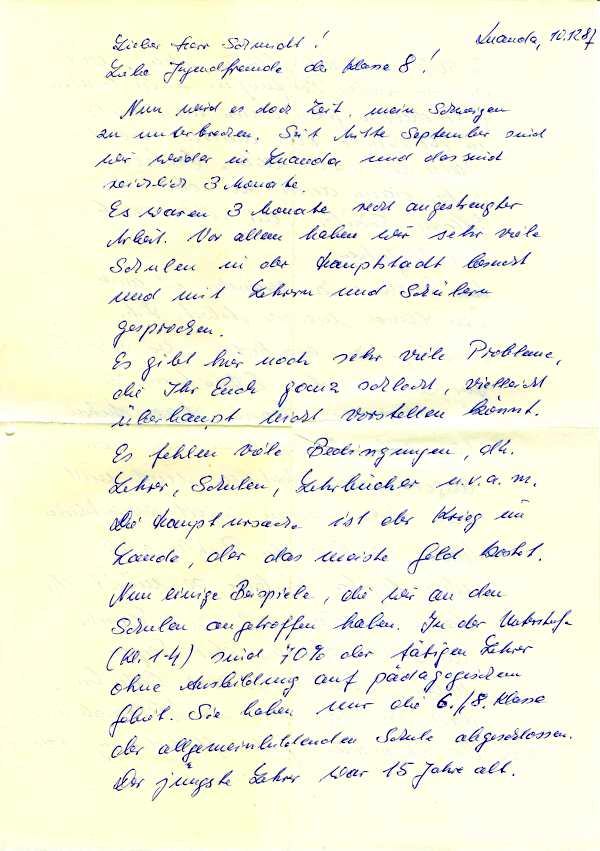 Luanda, 10.12.87
Lieber Herr Schmidt!
Liebe Jugendfreunde der Klasse 8!
Nun wird es doch Zeit, mein Schweigen
zu unterbrechen. Seit Mitte September sind
wir wieder in Luanda und das sind
reichlich 3 Monate.
Es waren 3 Monate recht angestrengter
Arbeit. Vor allem haben wir sehr viele
Schulen in der Hauptstadt besucht
und mit Lehrern und Schülern
gesprochen.
Es gibt hier noch sehr viele Probleme,
die Ihr Euch ganz schlecht, vielleicht
überhaupt nicht vorstellen könnt.
Es fehlen viele Bedingungen, dh.
Lehrer, Schulen, Lehrbücher u.v.a.m.
Die Hauptursache ist der Krieg im
Lande, der das meiste Geld kostet.
Nun einige Beispiele, die wir an den
Schulen angetroffen haben. In der Unterstufe
(Kl. 1-4) sind 70% der tätigen Lehrer
ohne Ausbildung auf pädagogischem
Gebiet. Sie haben nur die 6./8. Klasse
der allgemeinbildenden Schule abgeschlossen.
Der jüngste Lehrer war 15 Jahre alt.